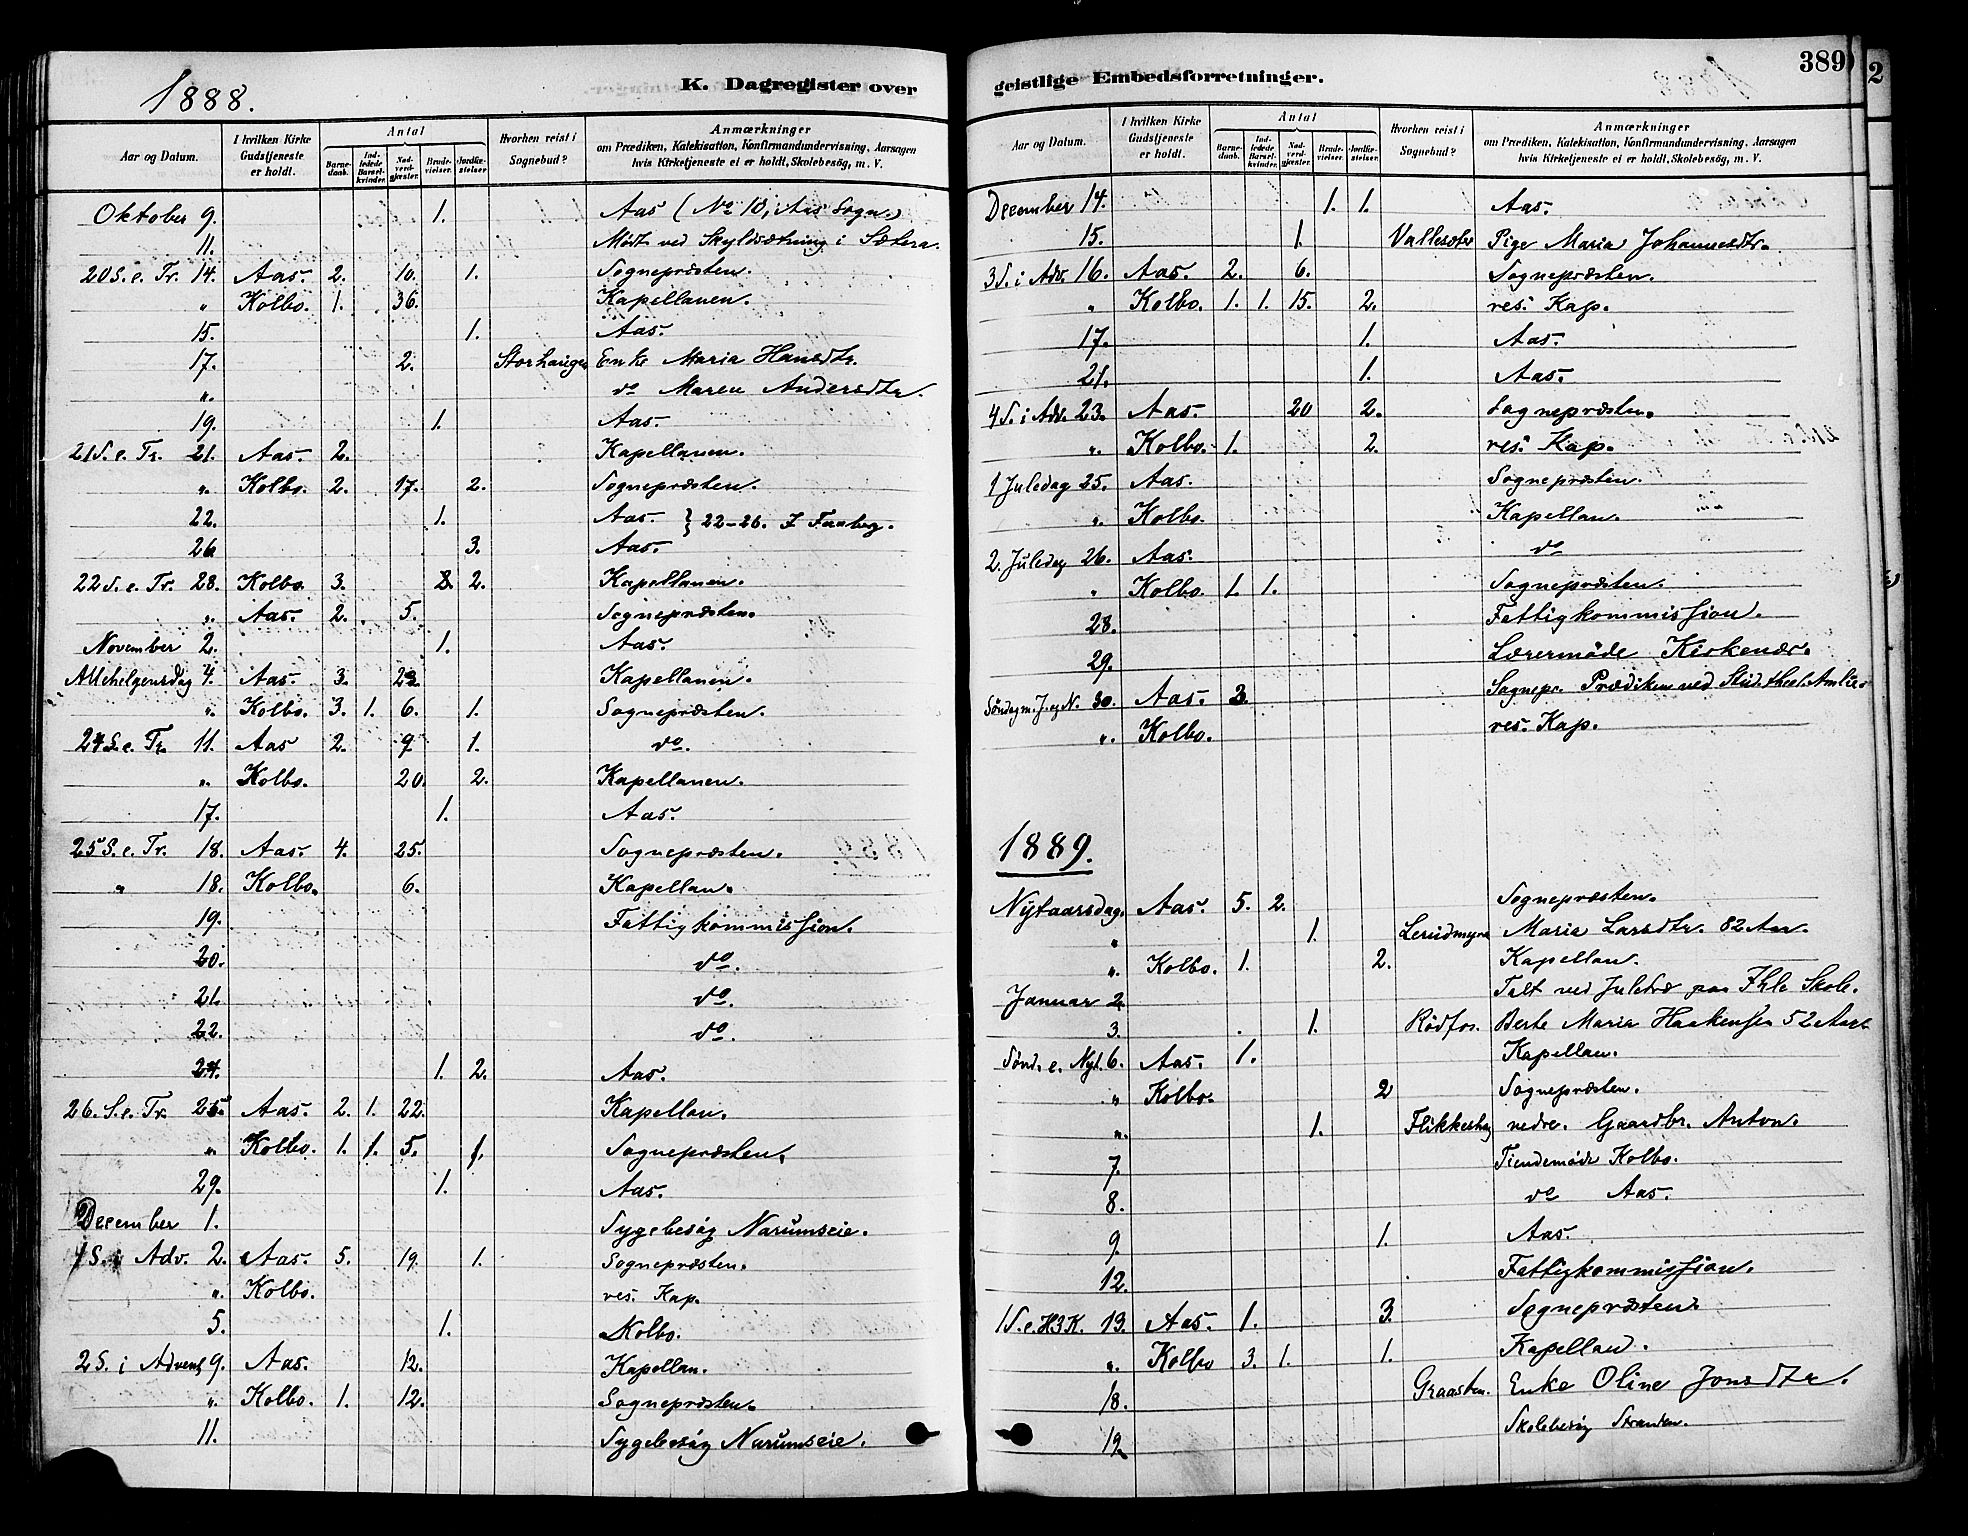 1888.
K. Dagregister over
Aar og Datum. I hvilken Kirke Gudstjeneste er holdt. Antal Barnedaab. Indledede Barselkvinder. Nadverdgjæster. Brudevielser. Jordfæstelser. Hvorhen reist i Sognebud? Anmærkninger om Prædiken, Katekisation, Konfirmandundervisning, Aarsagen hvis Kirketjeneste ei er holdt, Skolebesög, m. V.
Oktober 9. 1. Aas (No 10, Aas Sogn.)
11. Mødt ved Skyldsætning i Sætera.
20 S. e. Tr. 14. Aas. 2. 10. 1. Sognepræsten.
" Kolbo. 1. 36. Kapellanen.
15. 1. Aas.
17. 2. Storhaugen Enke Maria Hansdtr.
". do Maren Andersdtr.
19. 1. Aas.
21 S. e. Tr. 21. Aas. 2. Kapellanen.
". Kolbo. 2. 17. 2. Sognepræsten.
22. 1. Aas. } 22-26. I Faaberg.
26 3. Aas.
22 S. e. Tr. 28. Kolbo. 3. 2. Kapellanen.
". Aas. 2. 5. Sognepræsten.
November 2. 1. Aas.
Allehelgensdag 4. Aas. 3. 23. Kapellanen.
". Kolbo. 3. 1. 6. 1. Sognepræsten.
24 S. e. Tr. 11. Aas 2. 9 1. do.
". Kolbo. 20. 2. Kapellanen.
17. 1. Aas.
25 S. e. Tr. 18. Aas. 4. 25. Sognepræsten.
" 18. Kolbo. 6. Kapellan.
19. Fattigkommission.
20. do.
21. do.
22. do.
24. 1. 2. Aas.
26. S. e. Tr. 25 Aas. 2. 1. 22. Kapellan.
" Kolbo. 1. 1. 5. 1. Sognepræsten.
29. 1. Aas.
December 1. Sygebesøg Narumseie.
1 S. i Adv. 2. Aas. 5. 19. 1. Sognepræsten.
". Kolbo. res. Kap.
5. 1. Kolbo.
2 S. i Advent 9. Aas. 12. Kapellan.
". Kolbo. 1. 12. Sognepræsten.
11. Sygebesøg Narumseie.
geistlige Embedsforretninger.
389
2
Aar og Datum. I hvilken Kirke Gudstjeneste er holdt. Antal Barnedaab. Indledede Barselkvinder. Nadverdgjæster. Brudevielser. Jordfæstelser. Hvorhen reist i Sognebud? Anmærkninger om Prædiken, Katekisation, Konfirmandundervisning, Aarsagen hvis Kirketjeneste ei er holdt, Skolebesög, m. V.
December 14. 1. 1. Aas.
15. 1. Vallesæter Pige Maria Johannesdtr.
3 S. i Adv. 16. Aas. 2. 6. Sognepræsten.
" Kolbo. 1. 1. 15. 2. res. Kap.
17. 1. Aas.
21. 1. Aas.
4 S. i Adv. 23. Aas. 20 2. Sognepræsten.
". Kolbo. 1. 2. res. Kap.
1 Juledag 25. Aas. Sognepræsten.
". Kolbo. Kapellan.
2. Juledag 26. Aas. do
" Kolbo. 1. 1. Sognepræsten.
28. Fattigkommission.
29. Lærermøde Kirkenær.
Søndag m. J. og N. 30. Aas. Sognepr. Prædiken ved Stud. theol.
". Kolbo. res. Kap.
1889.
Nytaarsdag. Aas. 5. 2. Sognepræsten.
" 1. Lerudmyra Maria Larsdtr. 82 Aar.
". Kolbo. 1. 2. Kapellan.
Januar 2. Talt ved Juletræ paa Ihle Skole.
3. 1. Rødfos. Berte Maria Haakensen 52 Aar
Sønd. e. Nyt. 6. Aas. 1. Kapellan.
" Kolbo. 2 Sognepræsten.
". 1. Flikkeshaug nedre. Gaardbr. Anton.
7. Tiendemøde Kolbo.
8. do Aas.
9. 1. Aas.
12. Fattigkommission.
1 S. e. H3K. 13. Aas. 1. 3. Sognepræsten.
". Kolbo 3. 1. 1. Kapellan.
18. Graasten. Enke Oline Jonsdtr.
19. Skolebesøg Stranden.